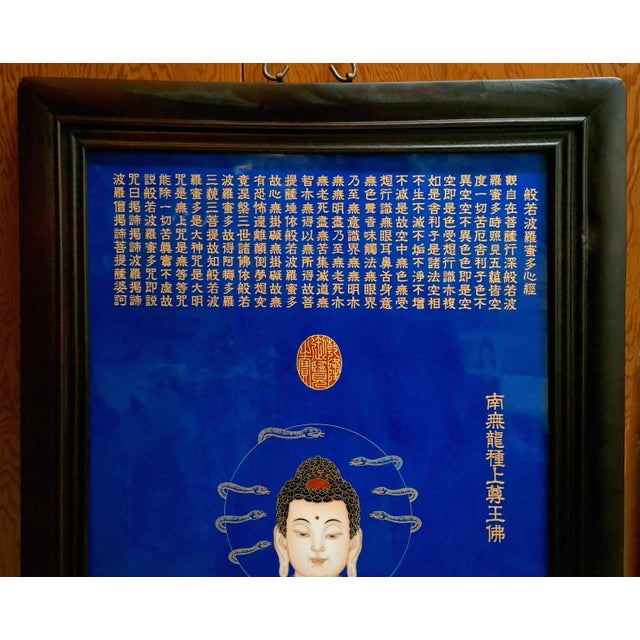 般若波羅蜜多心經
觀自在菩薩行深般若波
羅蜜多時照見五蘊皆空
度一切苦厄舍利子色不
異空空不異色色即是空
空即是色受想行識亦複
如是舍利子是諸法空相
不生不滅不垢不淨不增
不減是故空中無色無受
想行識無眼耳鼻舌身意
無色聲香味觸法無眼界
乃至無意識界無無明亦
無無明盡乃至無老死亦
無老死盡無苦集滅道無
智亦無得以無所得故菩
提薩埵依般若波羅蜜多
故心無掛礙無掛礙故無
有恐怖遠離顛倒夢想究
竟涅槃三世諸佛依般若
波羅蜜多故得阿耨多羅
三藐三菩提故知般若波
羅蜜多是大神咒是大明
咒是無上咒是無等等咒
能除一切苦真實不虛故
說般若波羅蜜多咒即說
咒曰揭諦揭諦波羅揭諦
波羅僧揭諦菩提薩婆訶
乾隆御覽之寶
南無龍種上尊王佛